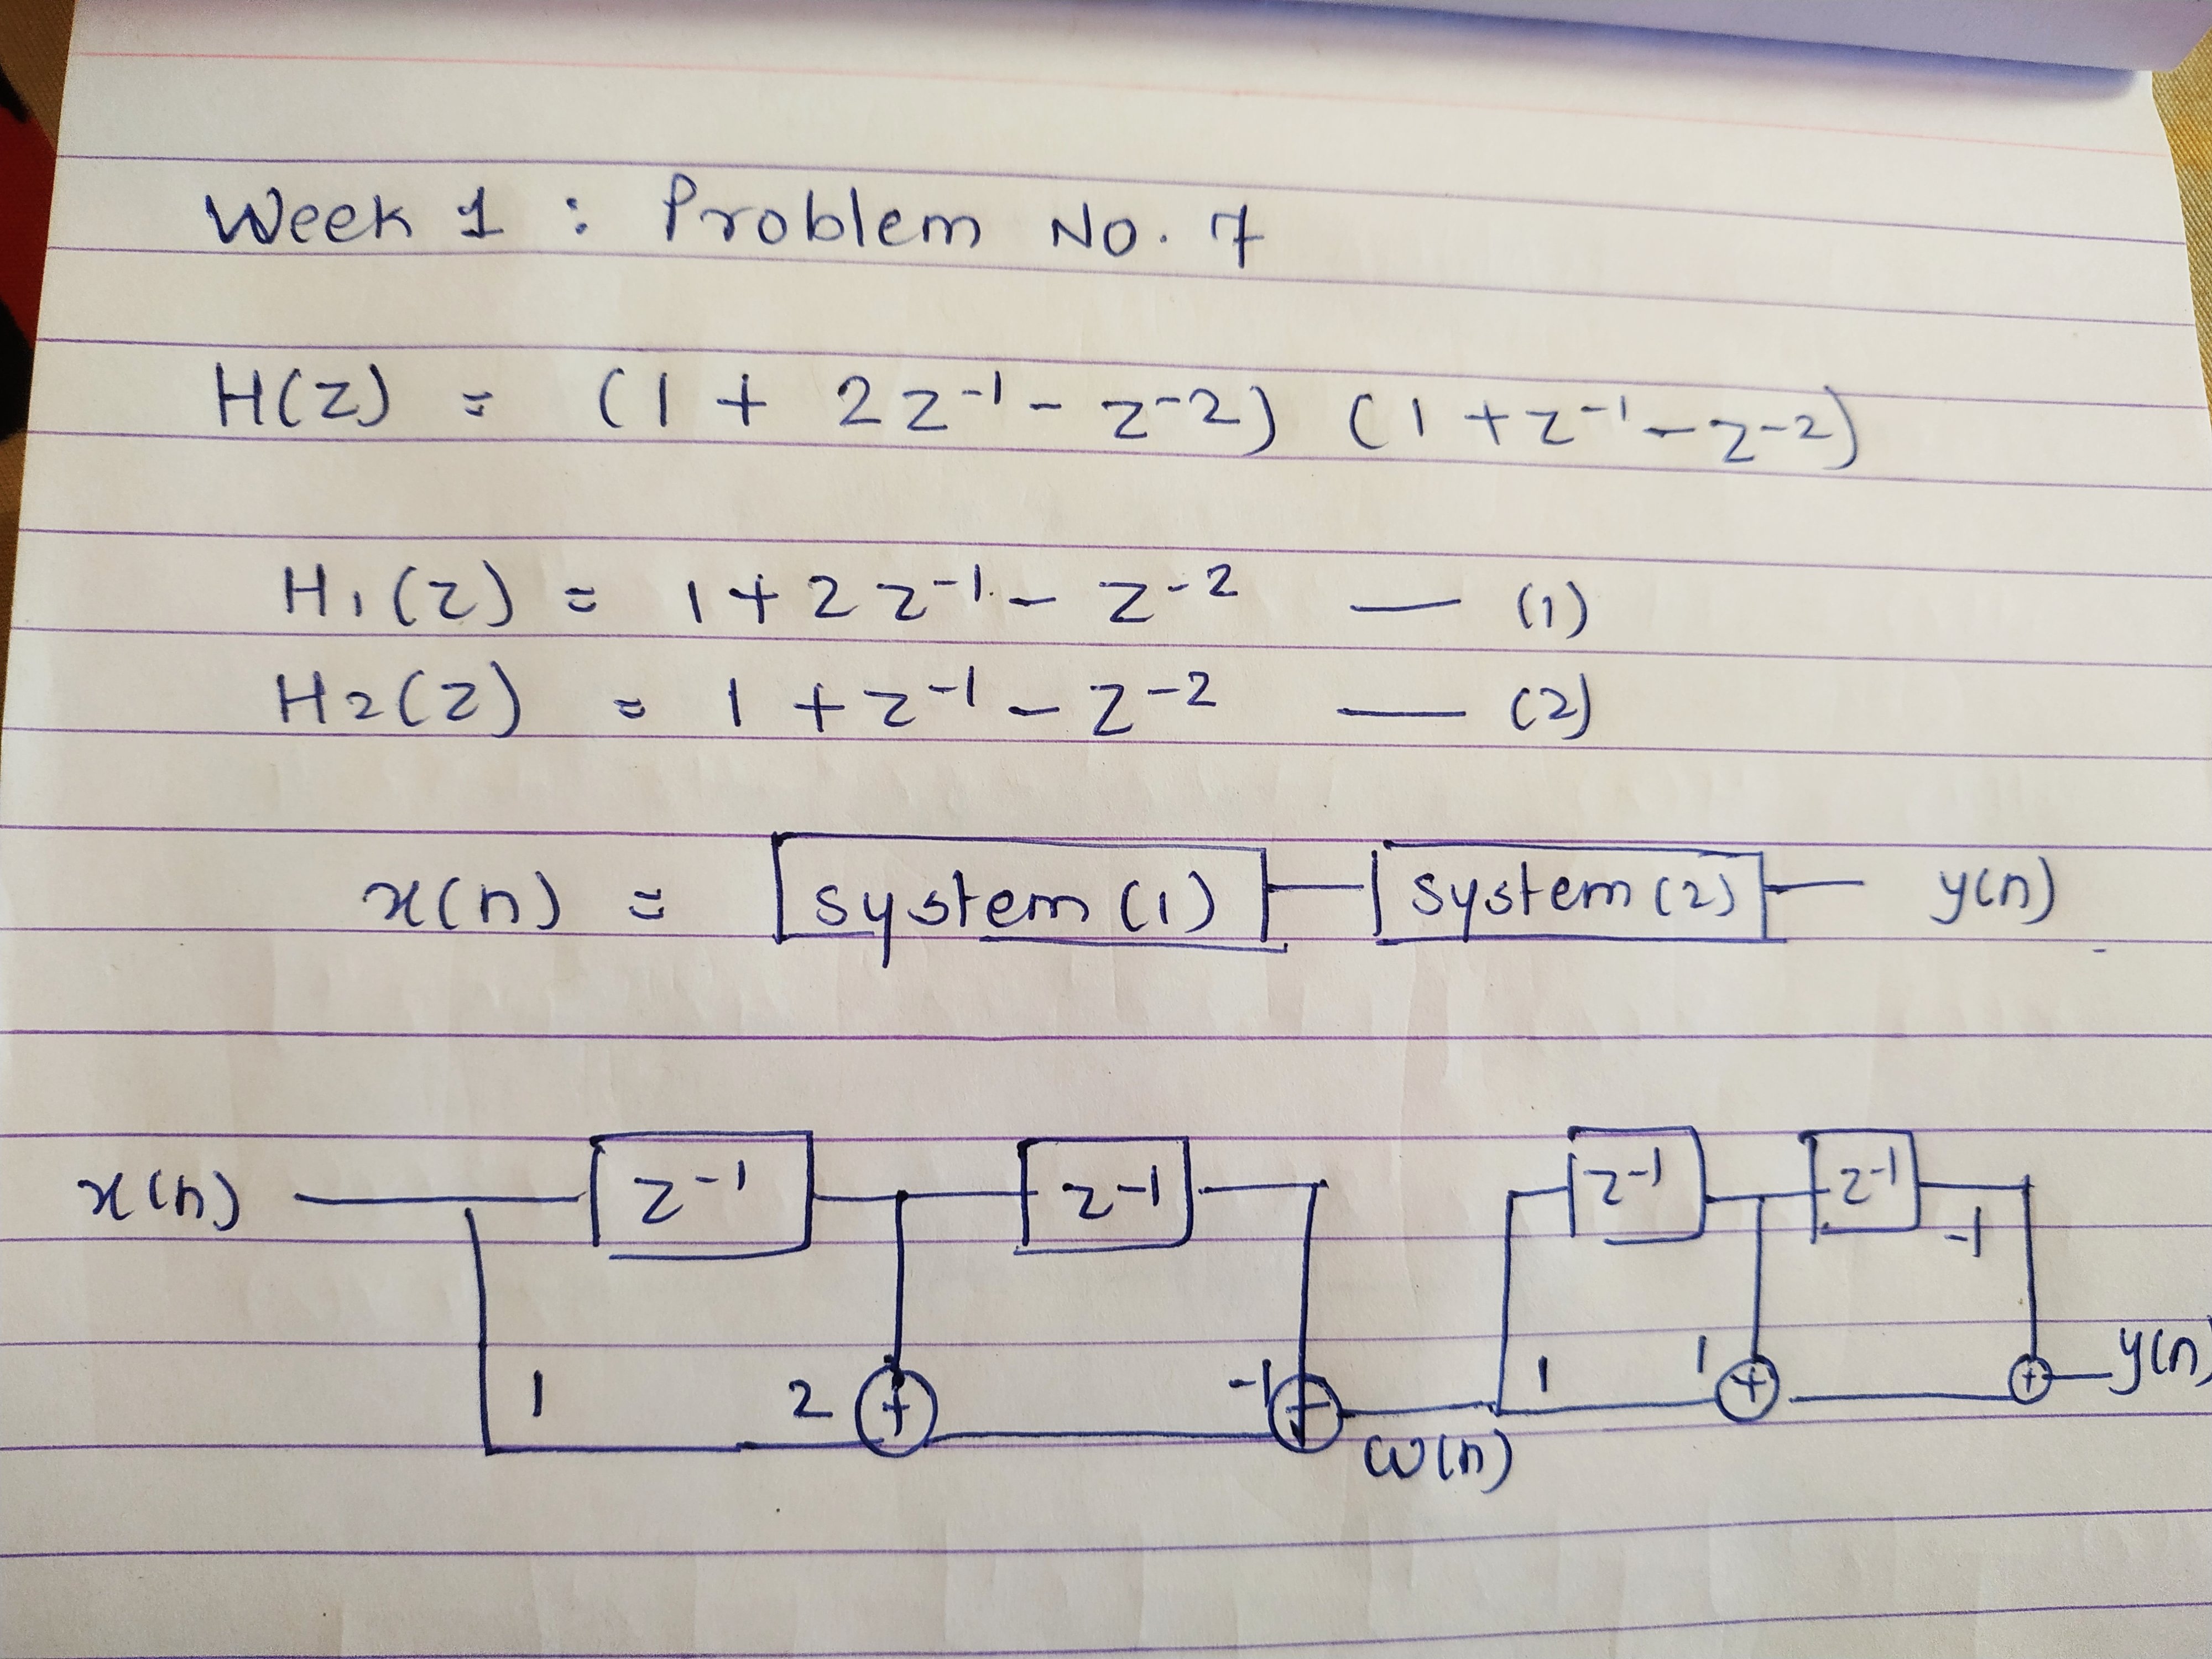 Week 1 : Problem No. 7
H(z) = (1 + 2z⁻¹ - z⁻²) (1 + z⁻¹ - z⁻²)
H₁(z) = 1 + 2z⁻¹ - z⁻² — (1)
H₂(z) = 1 + z⁻¹ - z⁻² — (2)
x(n) = system (1) system (2) y(n)
x(n) z⁻¹ z⁻¹ z⁻¹ z⁻¹
-1
1 2 + -1 + 1 1 + + y(n)
w(n)